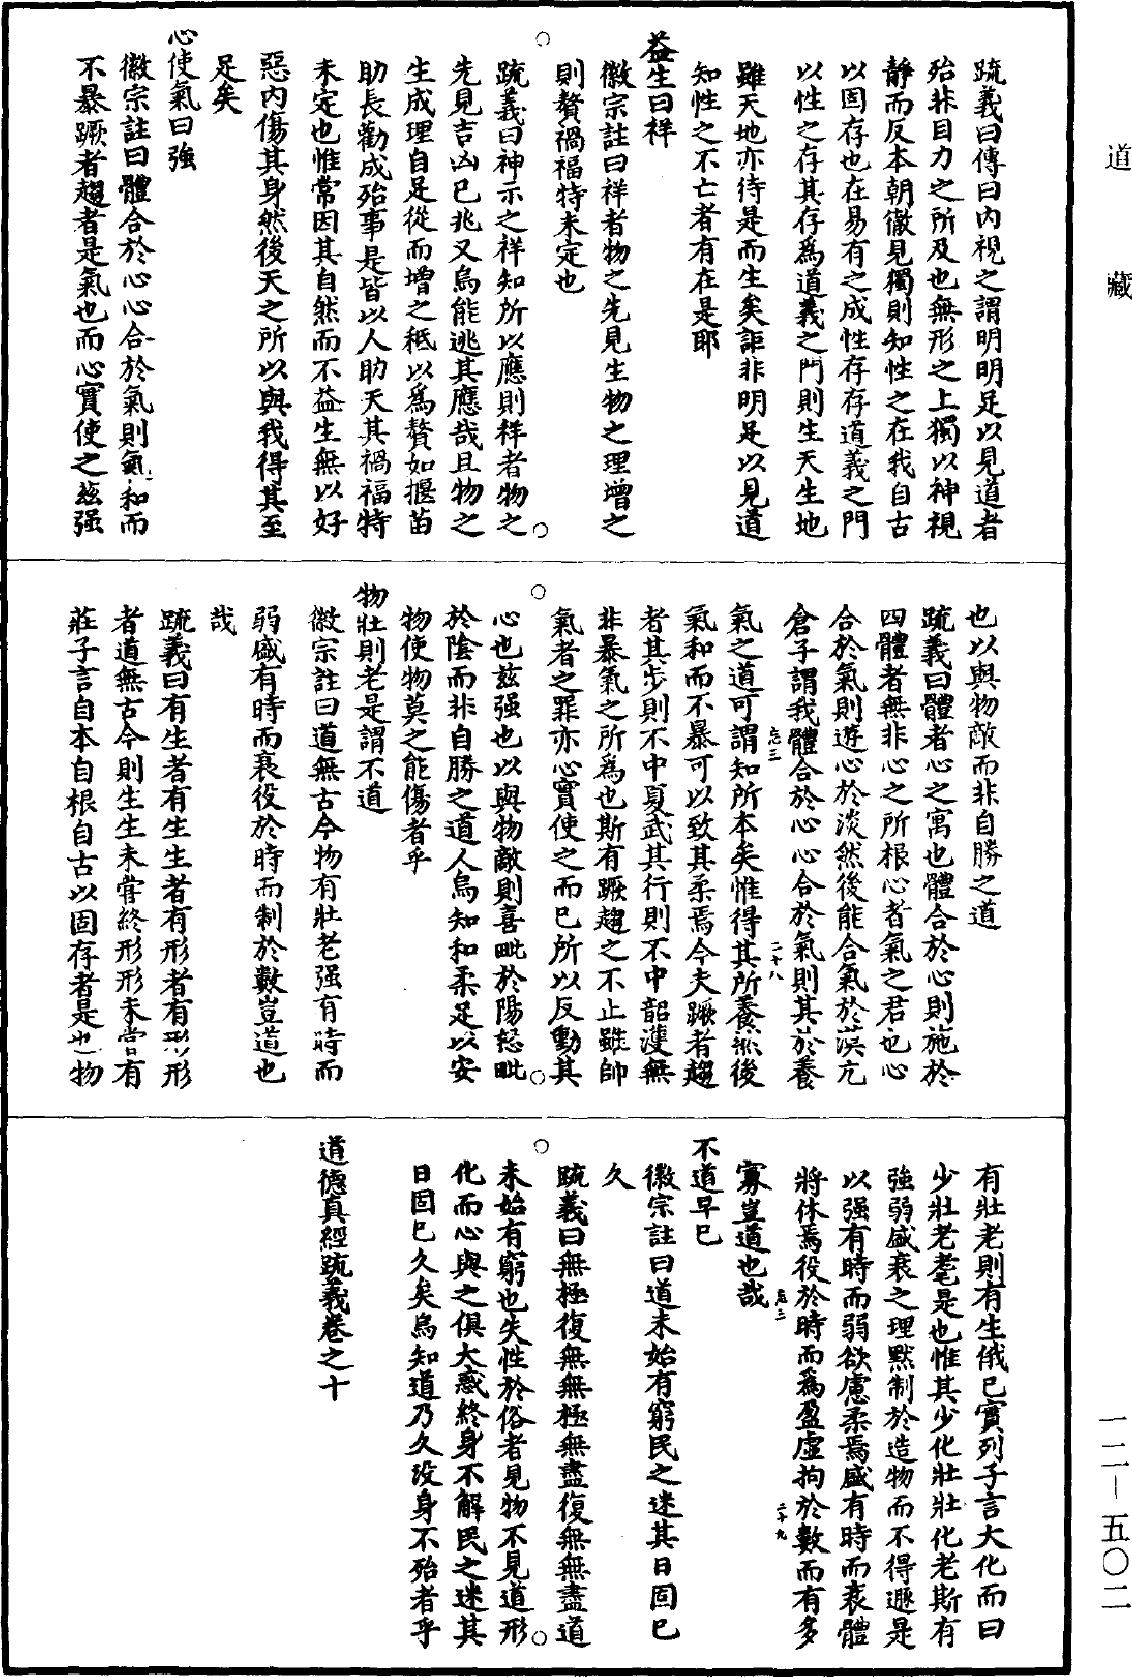 道藏
疏義曰傳曰內視之謂明明足以見道者
殆非目力之所及也無形之上獨以神視
靜而反本朝徹見獨則知性之在我自古
以固存也在易有之成性存存道義之門
以性之存其存爲道義之門則生天生地
雖天地亦待是而生矣詎非明足以見道
知性之不亡者有在是耶
益生曰祥
徽宗註曰祥者物之先見生物之理增之
則贅禍福特未定也
疏義曰神示之祥知所以應則祥者物之
先見吉凶已兆又烏能逃其應哉且物之
生成理自足從而增之秪以爲贅如揠苗
助長勸成殆事是皆以人助天其禍福特
未定也惟常因其自然而不益生無以好
惡內傷其身然後天之所以與我得其至
足矣
心使氣曰強
徽宗註曰體合於心心合於氣則氣和而
不暴蹶者趨者是氣也而心實使之茲强
也以與物敵而非自勝之道
疏義曰體者心之寓也體合於心則施於
四體者無非心之所根心者氣之君也心
合於氣則遊心於淡然後能合氣於漠亢
倉子謂我體合於心心合於氣則其於養
氣之道可謂知所本矣惟得其所養然後
氣和而不暴可以致其柔焉今夫蹶者趨
者其步則不中夏武其行則不中韶濩無
非暴氣之所爲也斯有蹶趨之不止雖帥
氣者之罪亦心實使之而已所以反動其
心也茲强也以與物敵則喜毗於陽怒毗
於陰而非自勝之道人烏知和柔足以安
物使物莫之能傷者乎
物壯則老是謂不道
徽宗註曰道無古今物有壯老强有時而
弱盛有時而衰役於時而制於數豈道也
哉
疏義曰有生者有生生者有形者有形形
者道無古今則生生未嘗終形形未嘗有
莊子言自本自根自古以固存者是也物
有壯老則有生俄已實列子言大化而曰
少壯老耄是也惟其少化壯壯化老斯有
強弱盛衰之理默制於造物而不得遯是
以强有時而弱欲慮柔焉盛有時而衰體
將休焉役於時而爲盈虛拘於數而有多
寡豈道也哉
不道早已
徽宗註曰道未始有窮民之迷其日固已
久
疏義曰無極復無無極無盡復無無盡道
未始有窮也失性於俗者見物不見道形
化而心與之俱大惑終身不解民之迷其
日固已久矣烏知道乃久沒身不殆者乎
道德真經疏義卷之十
二十八
二十九
一二—五〇二